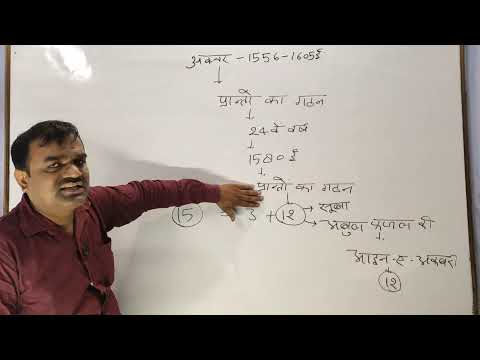 अकबर - 1556-1605ई
↓
प्रान्तो का गठन
↓
24 वे वर्ष
↓
1580 ई
↓
प्रान्तो का गठन
15 = 3 + 12 → सूबा
→ अबुल फजल की
↓
आइन-ए-अकबरी
12